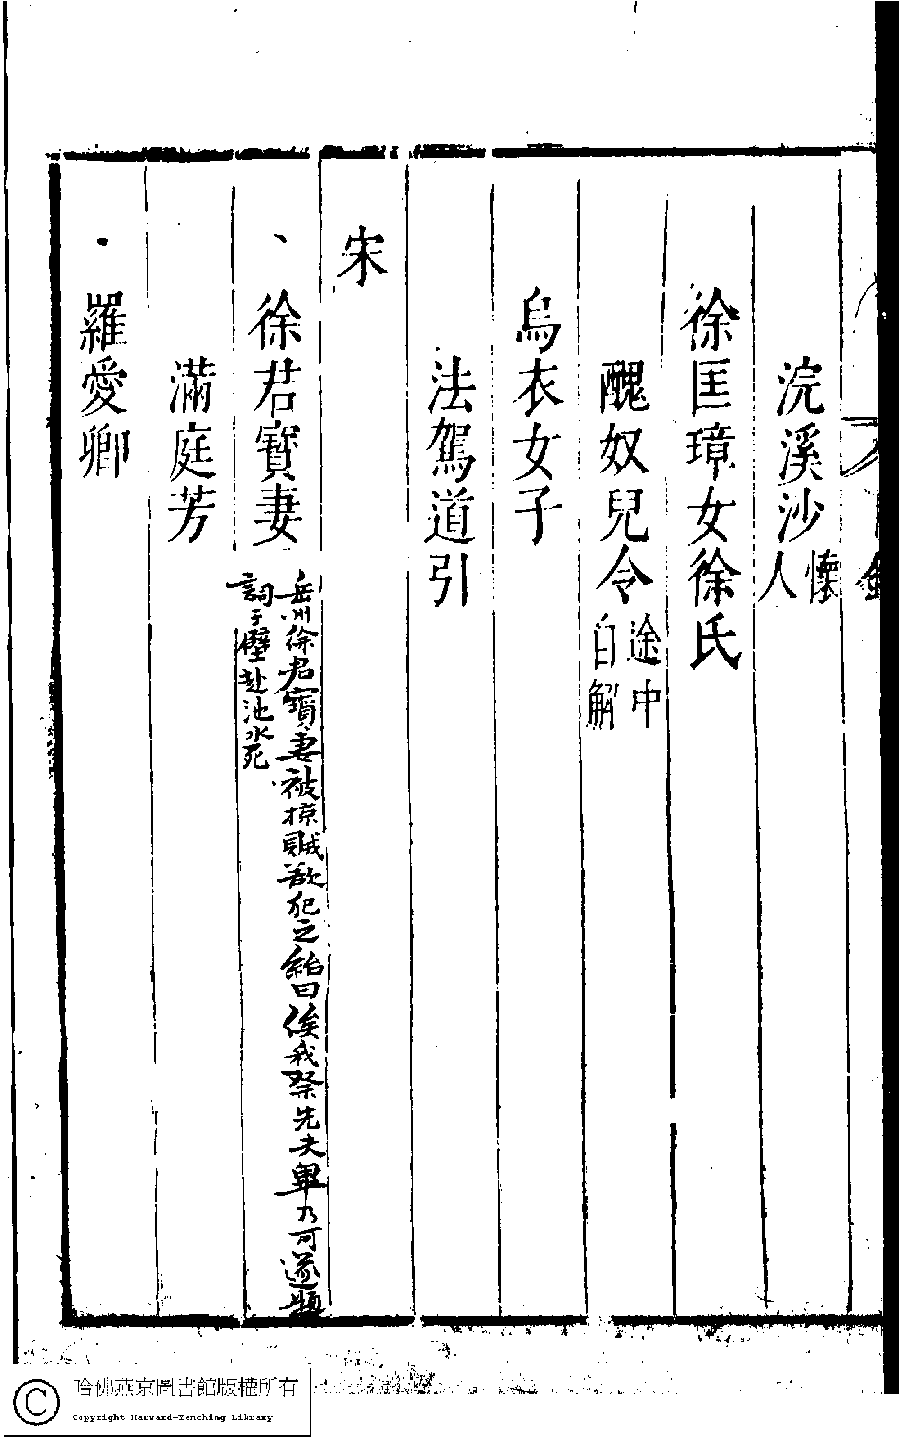 浣溪沙懷人
徐匡璋女徐氏
醜奴兒令途中自解
烏衣女子
法駕道引
宋
、徐君寶妻
岳州徐君寶妻被掠賊欲犯之紿曰俟我祭先夫畢乃可遂題
詞于壁赴池水死
滿庭芳
羅愛卿
哈佛燕京圖書館版權所有
Copyright Harvard-Yenching Library